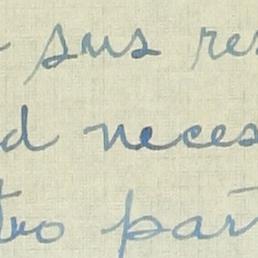 sus res
d neces
tro par